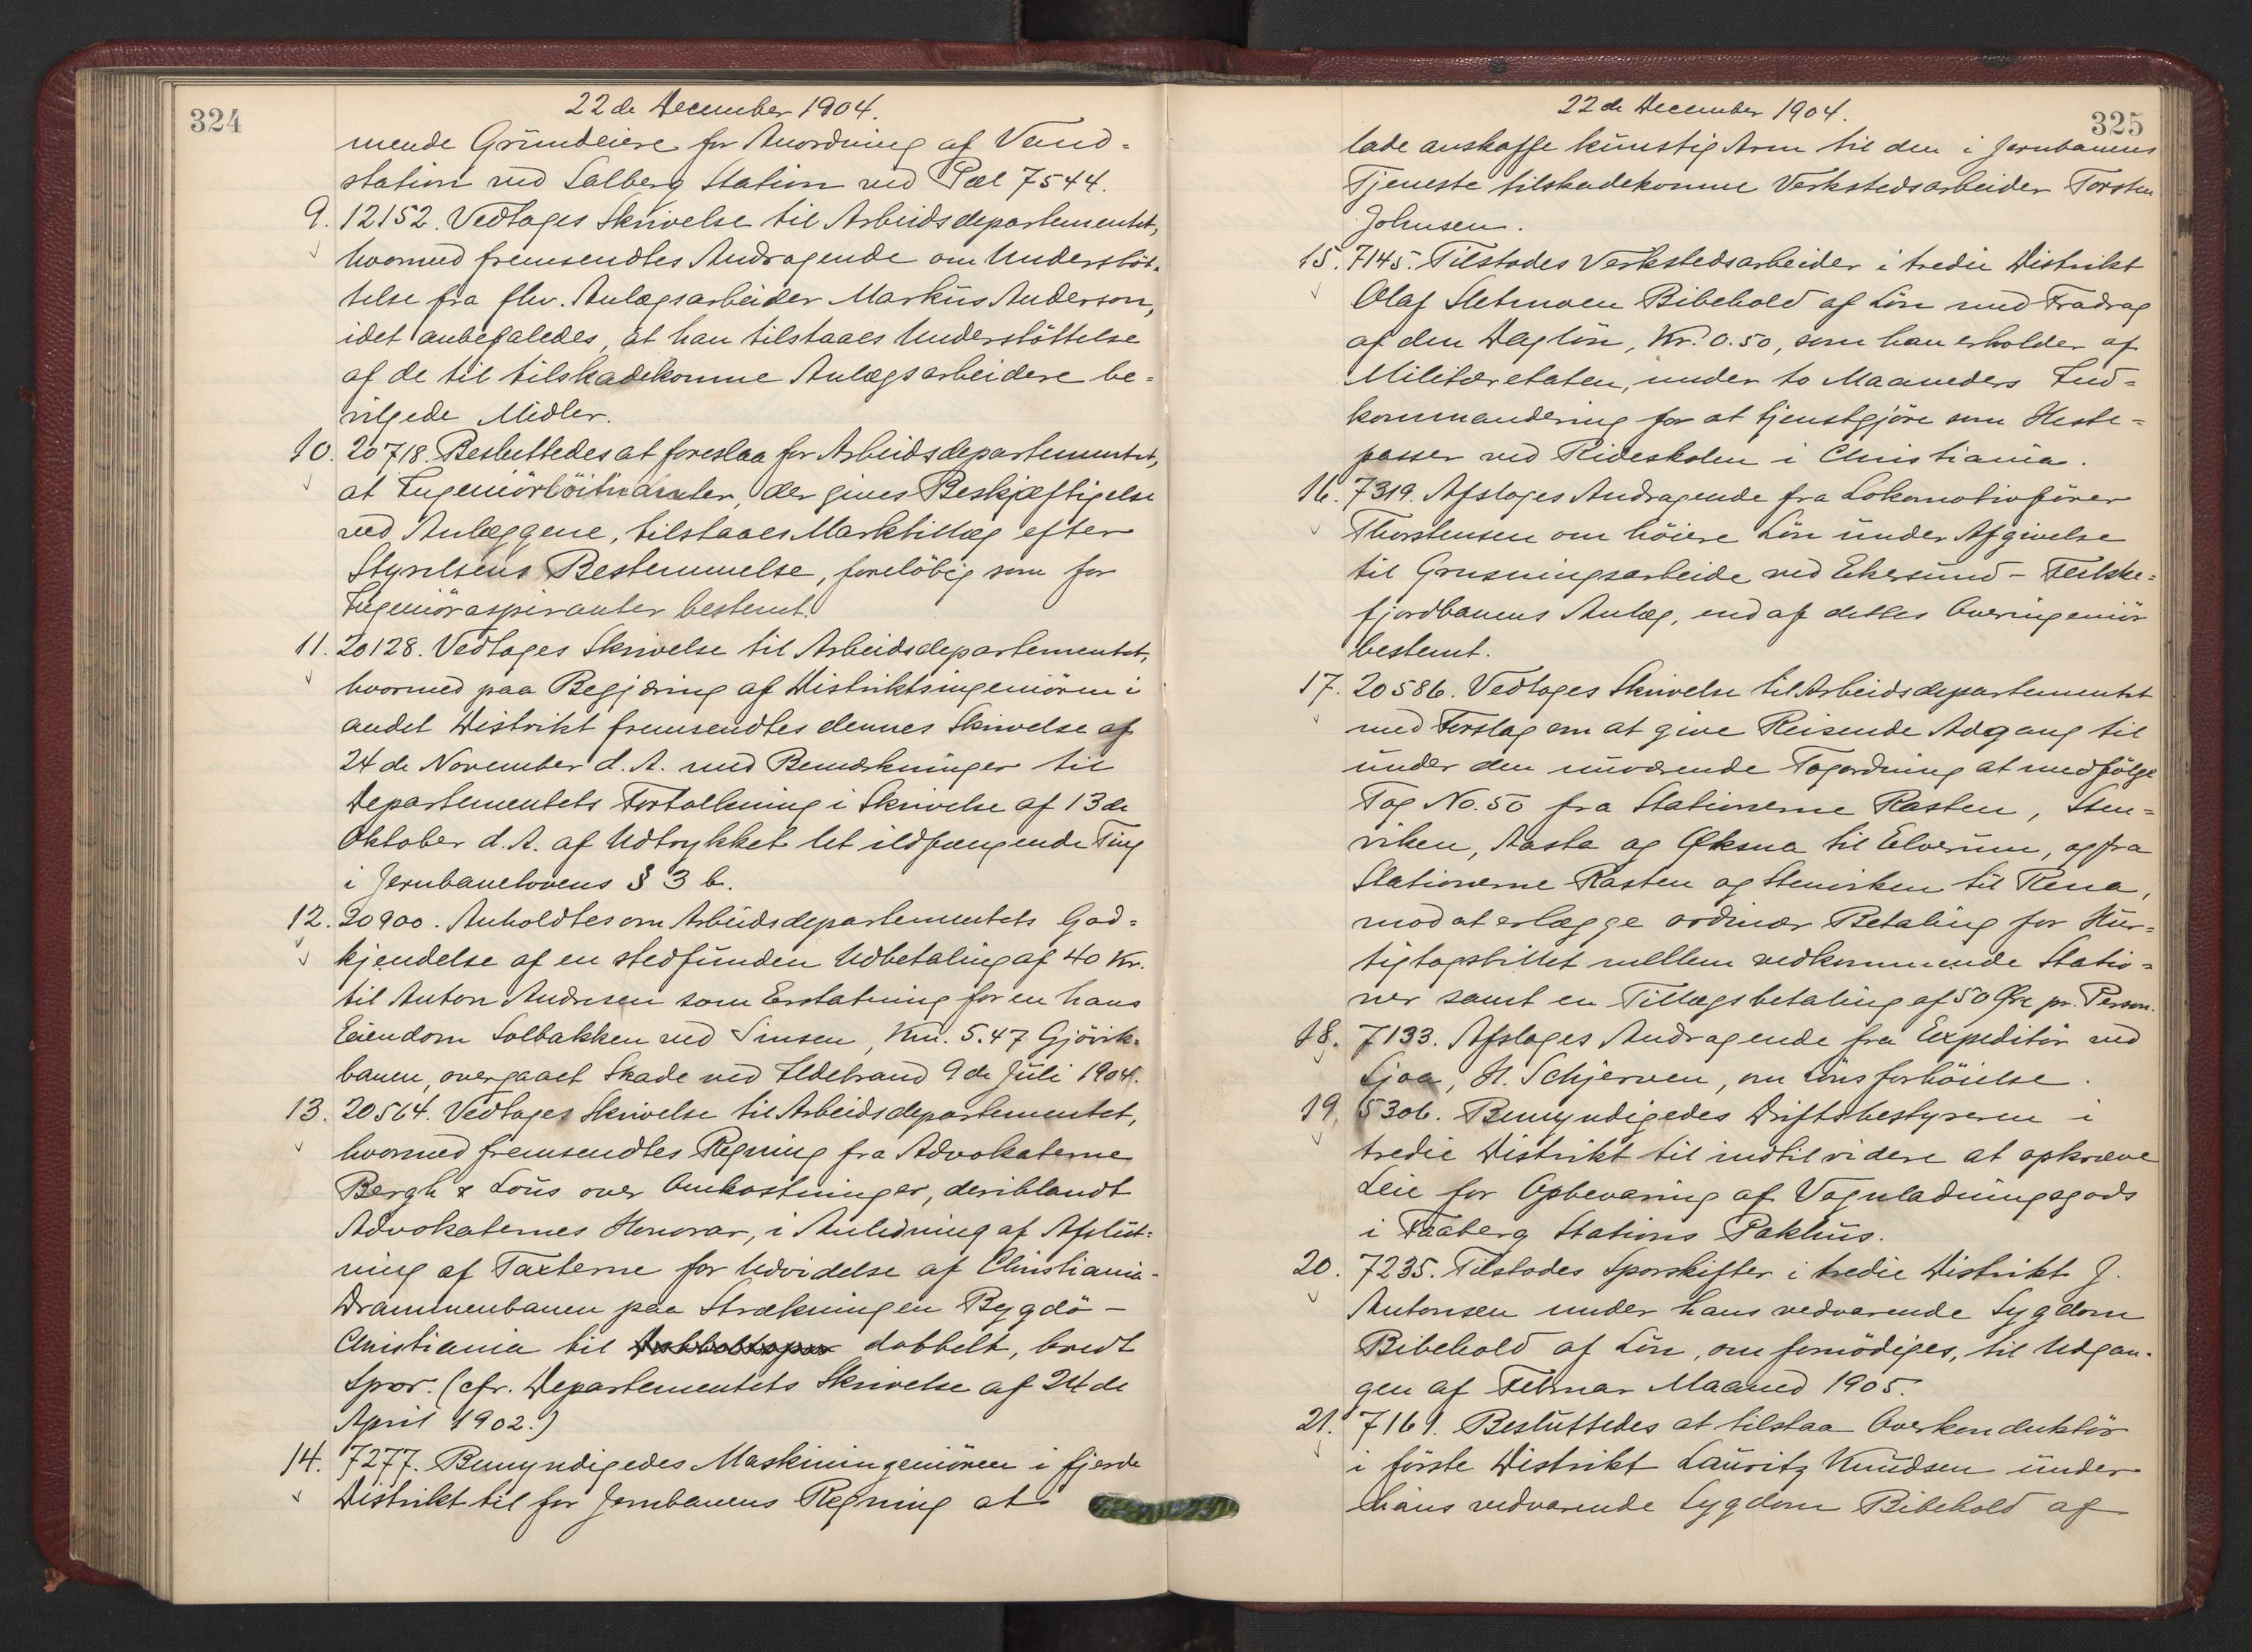 324
22de December 1904.
mende Grundeiere for Anordning af Vand-
station ved Salberg Station ved Pæl 7544.
9. 12152. Vedtages Skrivelse til Arbeidsdepartementet,
hvormed fremsendtes Andragende om Understöt-
telse fra fhv. Anlægsarbeider Markus Anderson,
idet anbefaledes, at han tilstaaes Understöttelse
af de til tilskadekomne Anlægsarbeidere be-
vilgede Midler.
10. 20718. Besluttedes at foreslaa for Arbeidsdepartementet,
at Ingeniörlöitnanter, der gives Beskjæftigelse
ved Anlæggene, tilstaaes Marktillæg efter
Styrelsens Bestemmelse, forelöbig som for
Ingeniöraspiranter bestemt.
11. 20128. Vedtages Skrivelse til Arbeidsdepartementet,
hvormed paa Begjæring af Distriktsingeniören i
andet Distrikt fremsendtes dennes Skrivelse af
24de November d. A. med Bemærkninger til
Departementets Fortolkning i Skrivelse af 13de
Oktober d. A. af Udtrykket let ildfængende Ting
i Jernbanelovens § 3 b.
12. 20900. Anholdtes om Arbeidsdepartementets God-
kjendelse af en stedfunden Udbetaling af 40 Kr.
til Anton Andresen som Erstatning for en hans
Eiendom Solbakken ved Sinsen, Km. 5.47 Gjövik-
banen, overgaaet Skade ved Ildebrand 9de Juli 1904.
13. 20564. Vedtages Skrivelse til Arbeidsdepartementet,
hvormed fremsendtes Regning fra Advokaterne
Bergh & Lous over Omkostninger, deriblandt
Advokaternes Honorar, i Anledning af Afslut-
ning af Taxterne for Udvidelse af Christiania-
Drammenbanen paa Strækningen Bygdö –
Christiania til dobbelt, bredt
Spor. (cfr. Departementets Skrivelse af 24de
April 1902.)
14. 7277. Bemyndigedes Maskiningeniören i fjerde
Distrikt til for Jernbanens Regning at
325
22de December 1904.
lade anskaffe kunstig Arm til den i Jernbanens
Tjeneste tilskadekomne Verkstedsarbeider Torsten
Johnsen.
15. 7145. Tilstodes Verkstedsarbeider i tredie Distrikt
Olaf Sletmoen Bibehold af Lön med Fradrag
af den Daglön, Kr. 0.50, som han erholder af
Militæretaten, under to Maaneders Ind-
kommandering for at tjenstgjöre som Heste-
passer ved Rideskolen i Christiania.
16. 7319. Afslages Andragende fra Lokomotivförer
Thorstensen om höiere Lön under Afgivelse
til Grusningsarbeide ved Ekersund – Flekke-
fjordbanens Anlæg, end af dettes Overingeniör
bestemt.
17. 20586. Vedtages Skrivelse til Arbeidsdepartementet
med Forslag om at give Reisende Adgang til
under den nuværende Togordning at medfölge
Tog No. 50 fra Stationerne Rasten, Sten-
viken, Aasta og Øksna til Elverum, og fra
Stationerne Rasten og Stenviken til Rena,
mod at erlægge ordinær Betaling for Hur-
tigtogsbillet mellem vedkommende Statio-
ner samt en Tillægsbetaling af 50 Øre pr. Person.
18. 7133. Afslages Andragende fra Expeditör ved
Sjoa, H. Schjerven, om Lönsforhöielse.
19. 5306. Bemyndigedes Driftsbestyreren i
tredie Distrikt til indtil videre at opkræve
Leie for Opbevaring af Vognladningsgods
i Faaberg Stations Pakhus.
20. 7235. Tilstodes Sporskifter i tredie Distrikt J.
Antonsen under hans vedvarende Sygdom
Bibehold af Lön, om fornödiges, til Udgan-
gen af Februar Maaned 1905.
21. 7161. Besluttedes at tilstaa Overkonduktör
i förste Distrikt Lauritz Knudsen under
hans vedvarende Sygdom Bibehold af